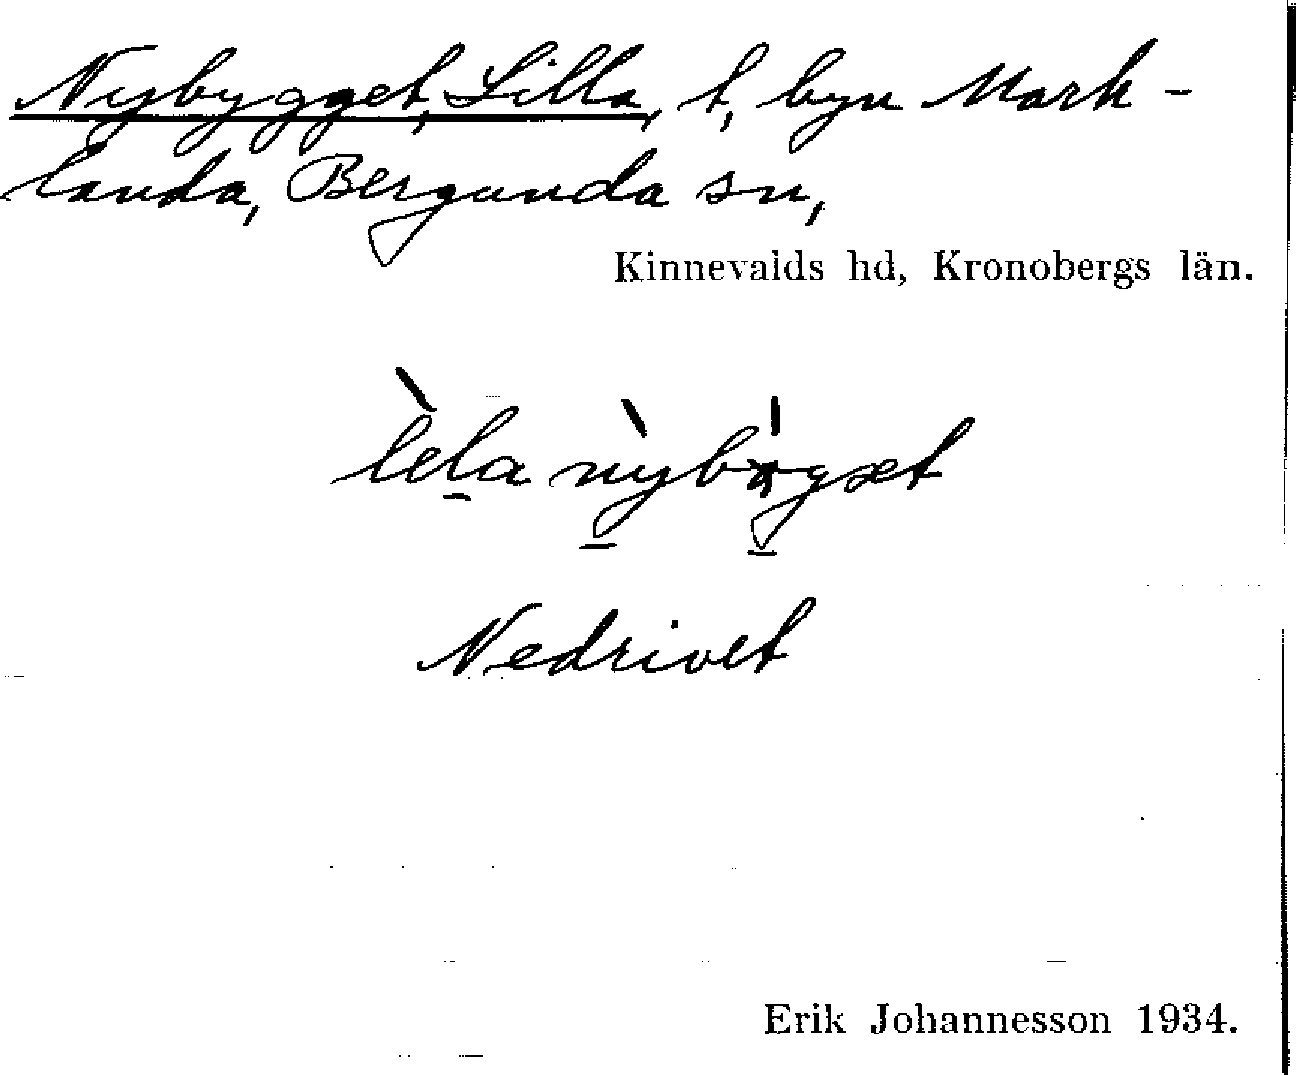 Nybygget, Lilla, t, byn Mark-
landa, Bergunda sn,
Kinnevalds hd, Kronobergs län.
lèla nỳbögset
Nedrivet
Erik Johannesson 1934.